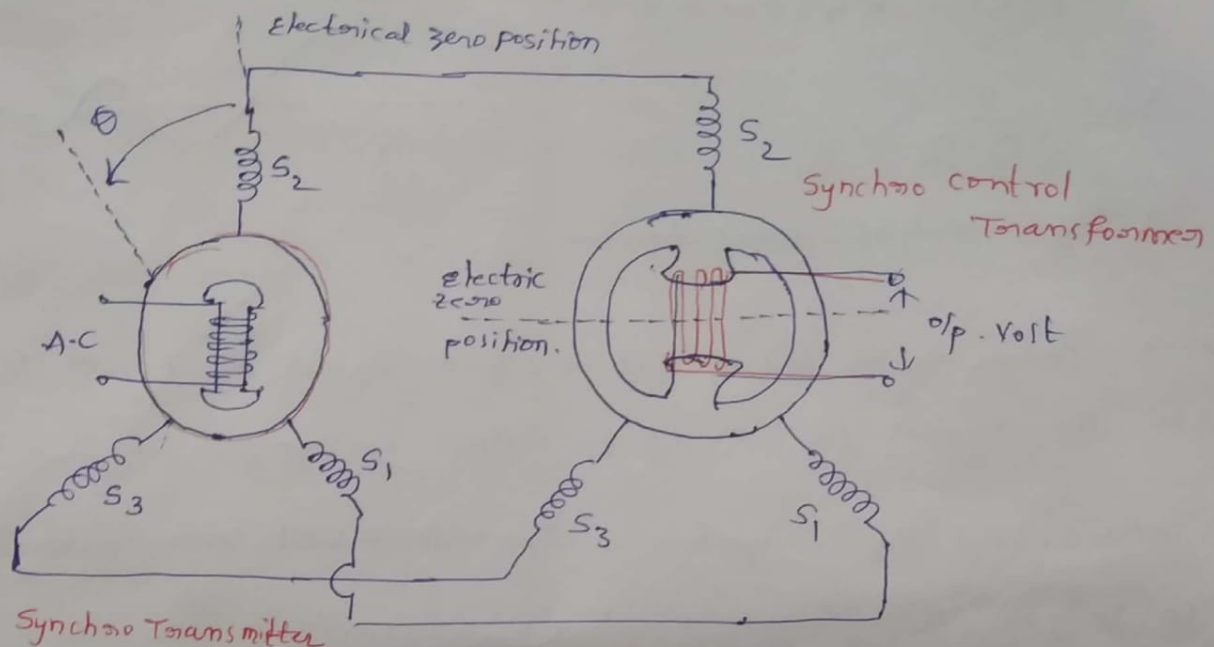 Electrical zero position
θ
S2
S2
Synchro control
Transformer
electric
zero
position.
A-C
o/p. volt
S1
S3
S3
S1
Synchro Transmitter